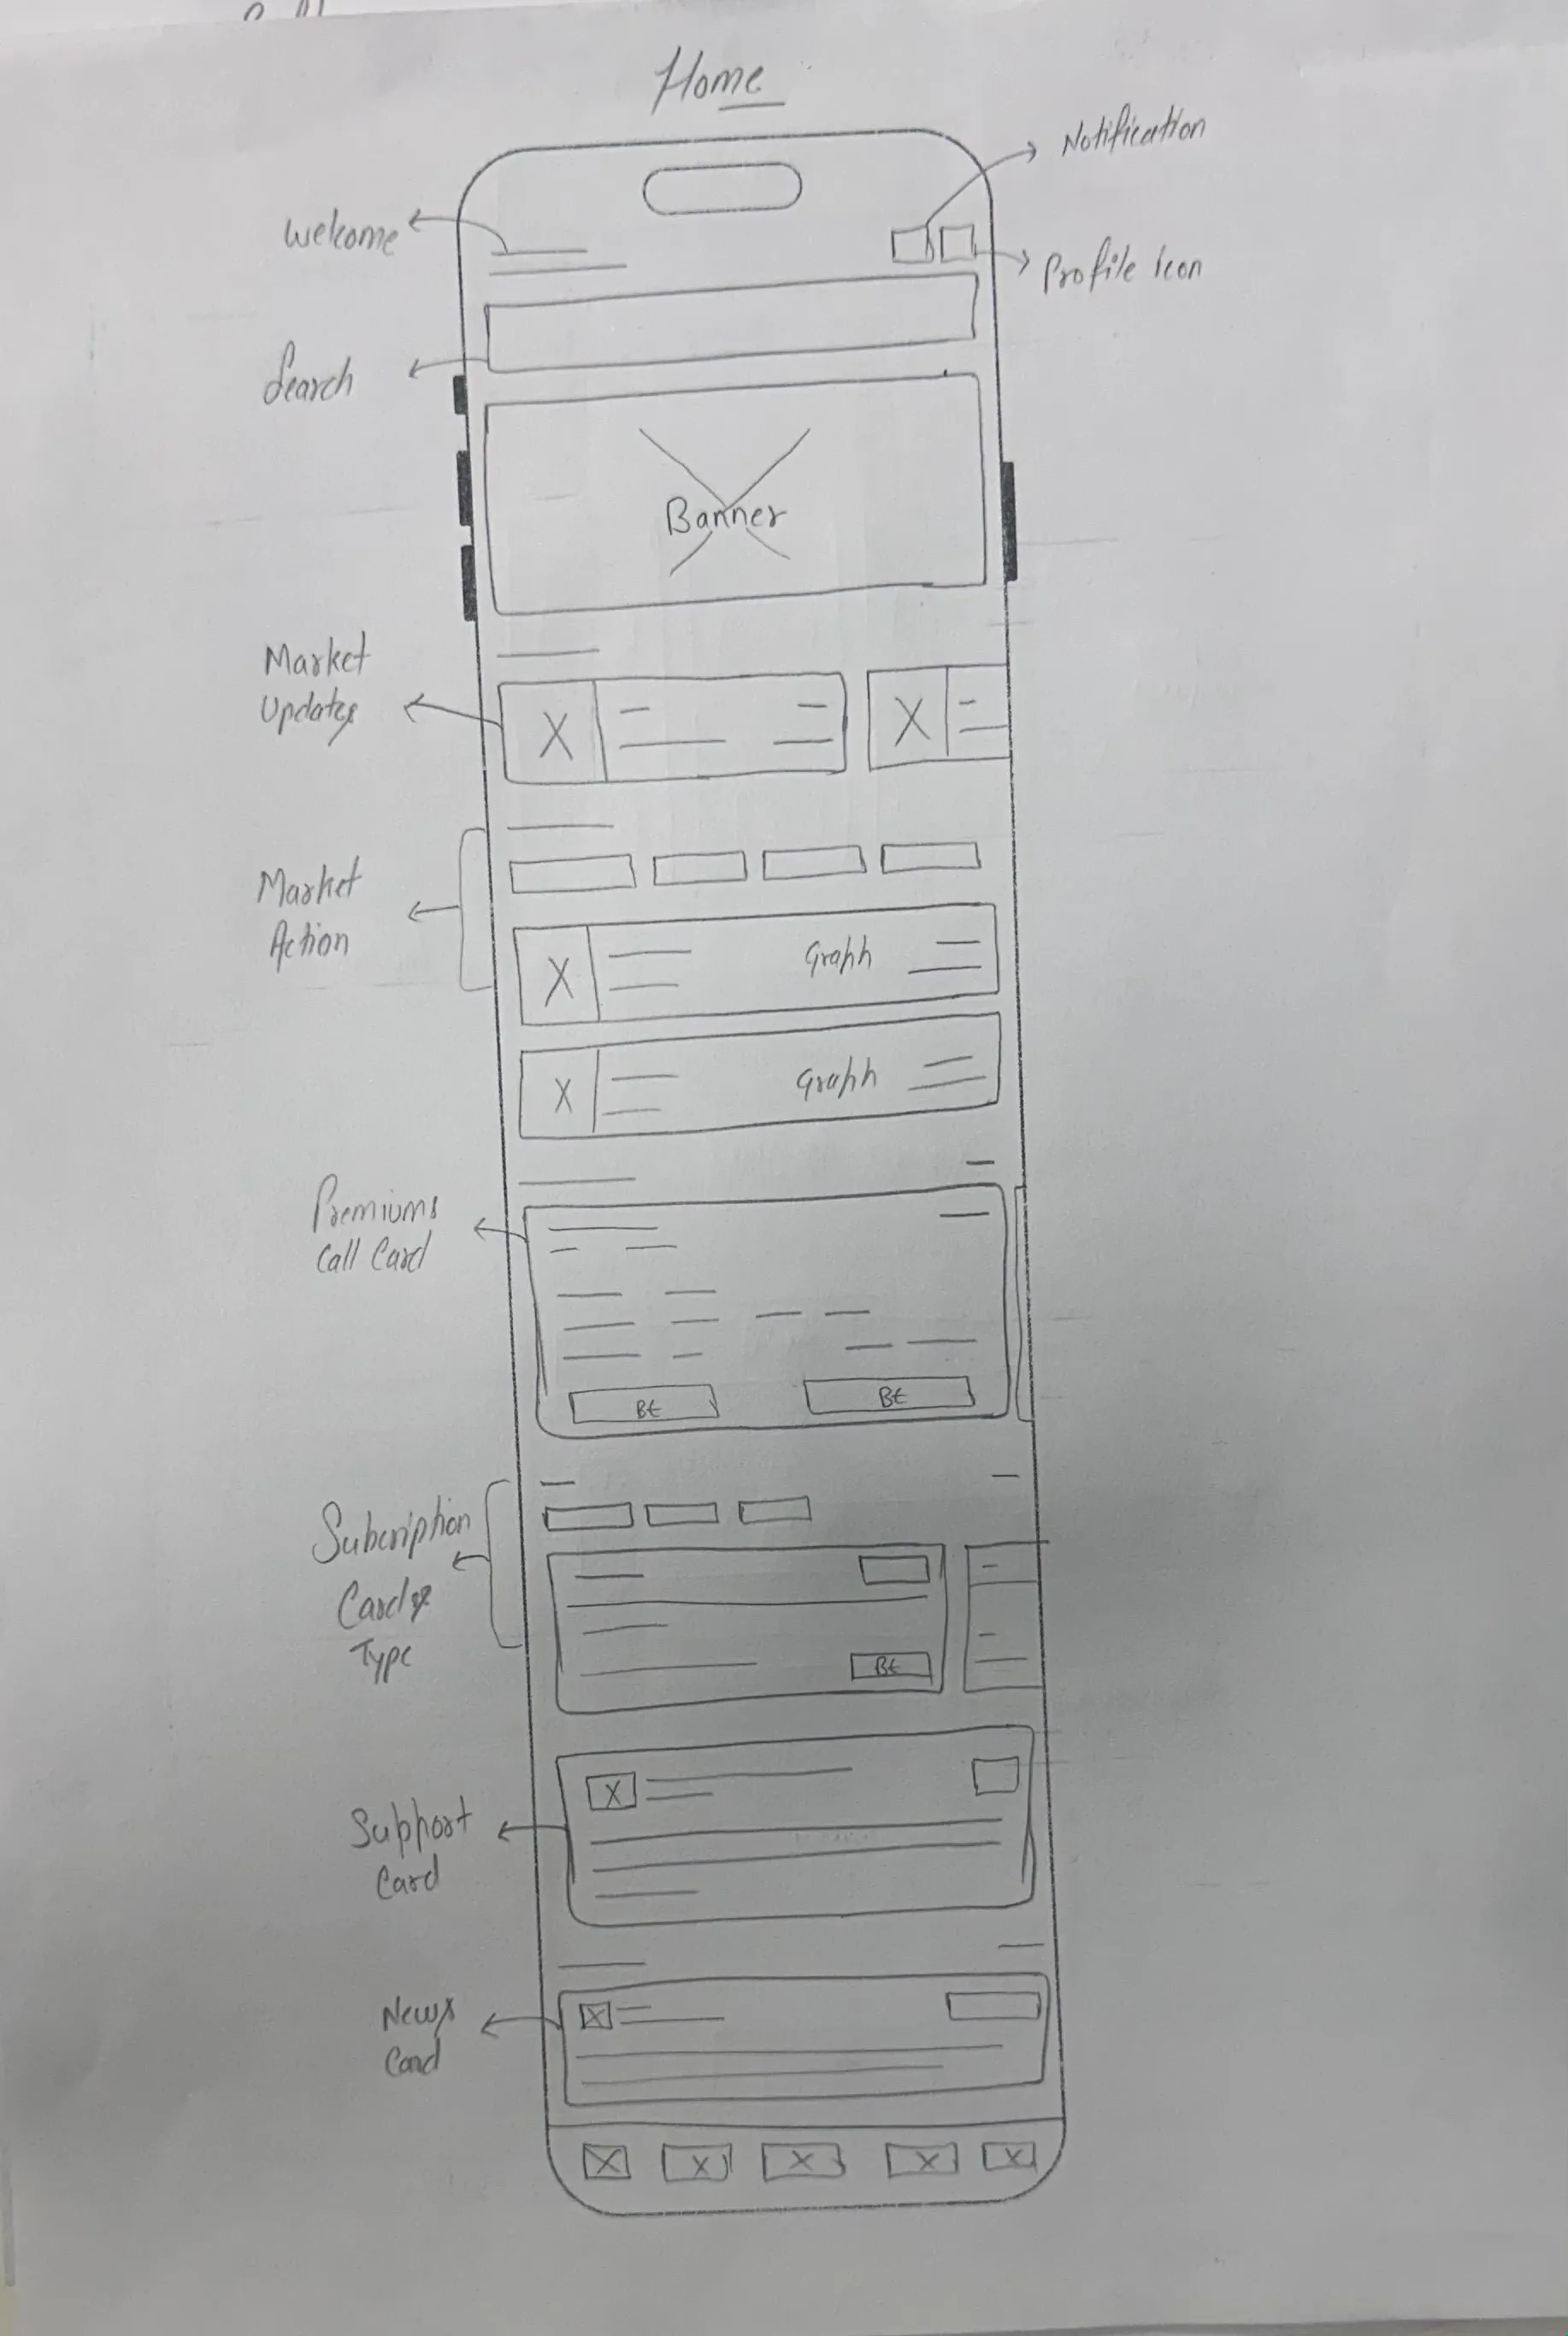 Home
Notification
Welcome
Profile Icon
Search
Banner
Market
Updates
Market
Action
Graph
Graph
Premiums
Call Card
BE
BE
Subcription
Cards
Type
BE
Support
Card
News
Card